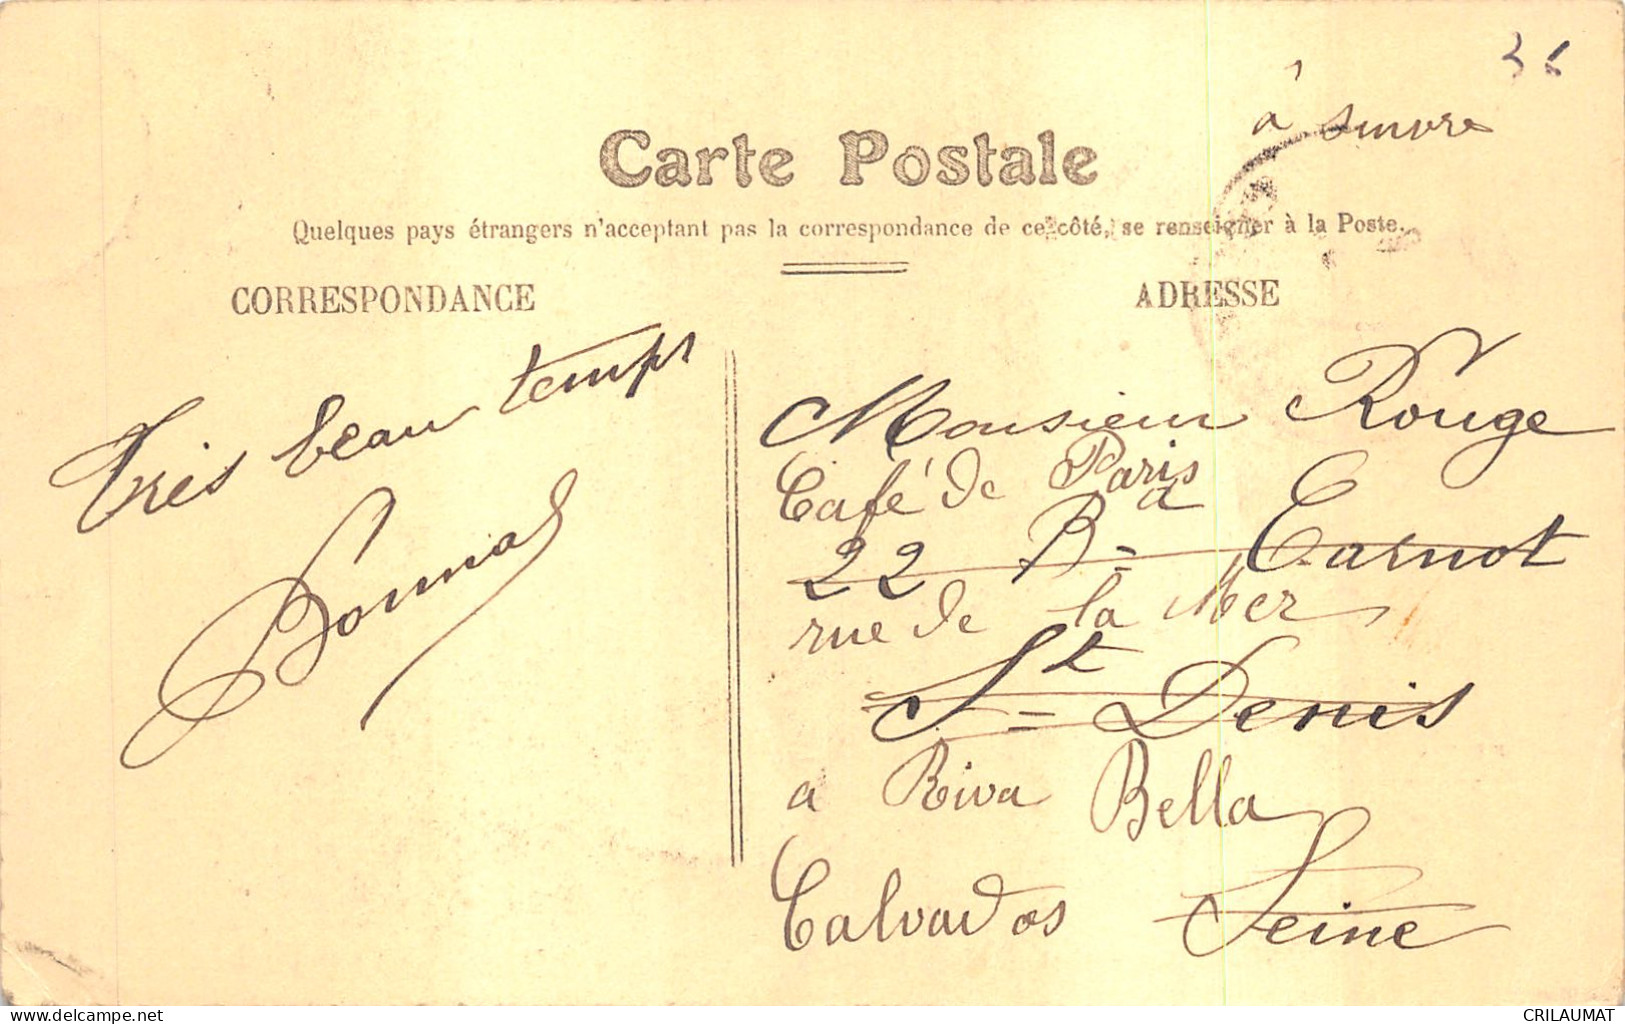 36
à suivre
Carte Postale
Quelques pays étrangers n'acceptant pas la correspondance de ce côté, se renseigner à la Poste.
CORRESPONDANCE
ADRESSE
Très beau temps
Monsieur Rouge
Café de Paris
22 Bd Carnot
rue de la Mer
St Denis
a Riva Bella
Calvados
Seine
delcampe.net
CRILAUMAT